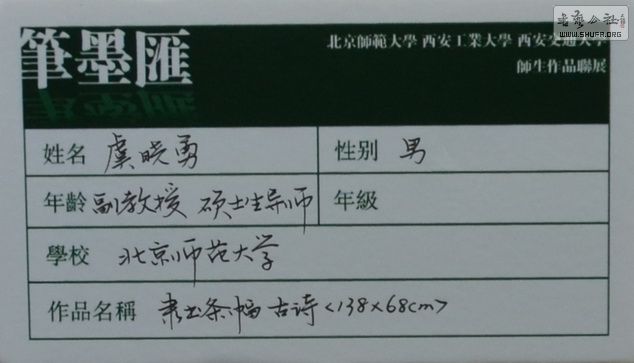 書齋公社
www.SHUFR.ORG
筆墨匯
北京師範大學 西安工業大學 西安交通大學
師生作品聯展
姓名 虞晓勇 性别 男
年齡 副教授 硕士生导师 年級
學校 北京师范大学
作品名稱 隶书条幅 古诗<138×68cm>